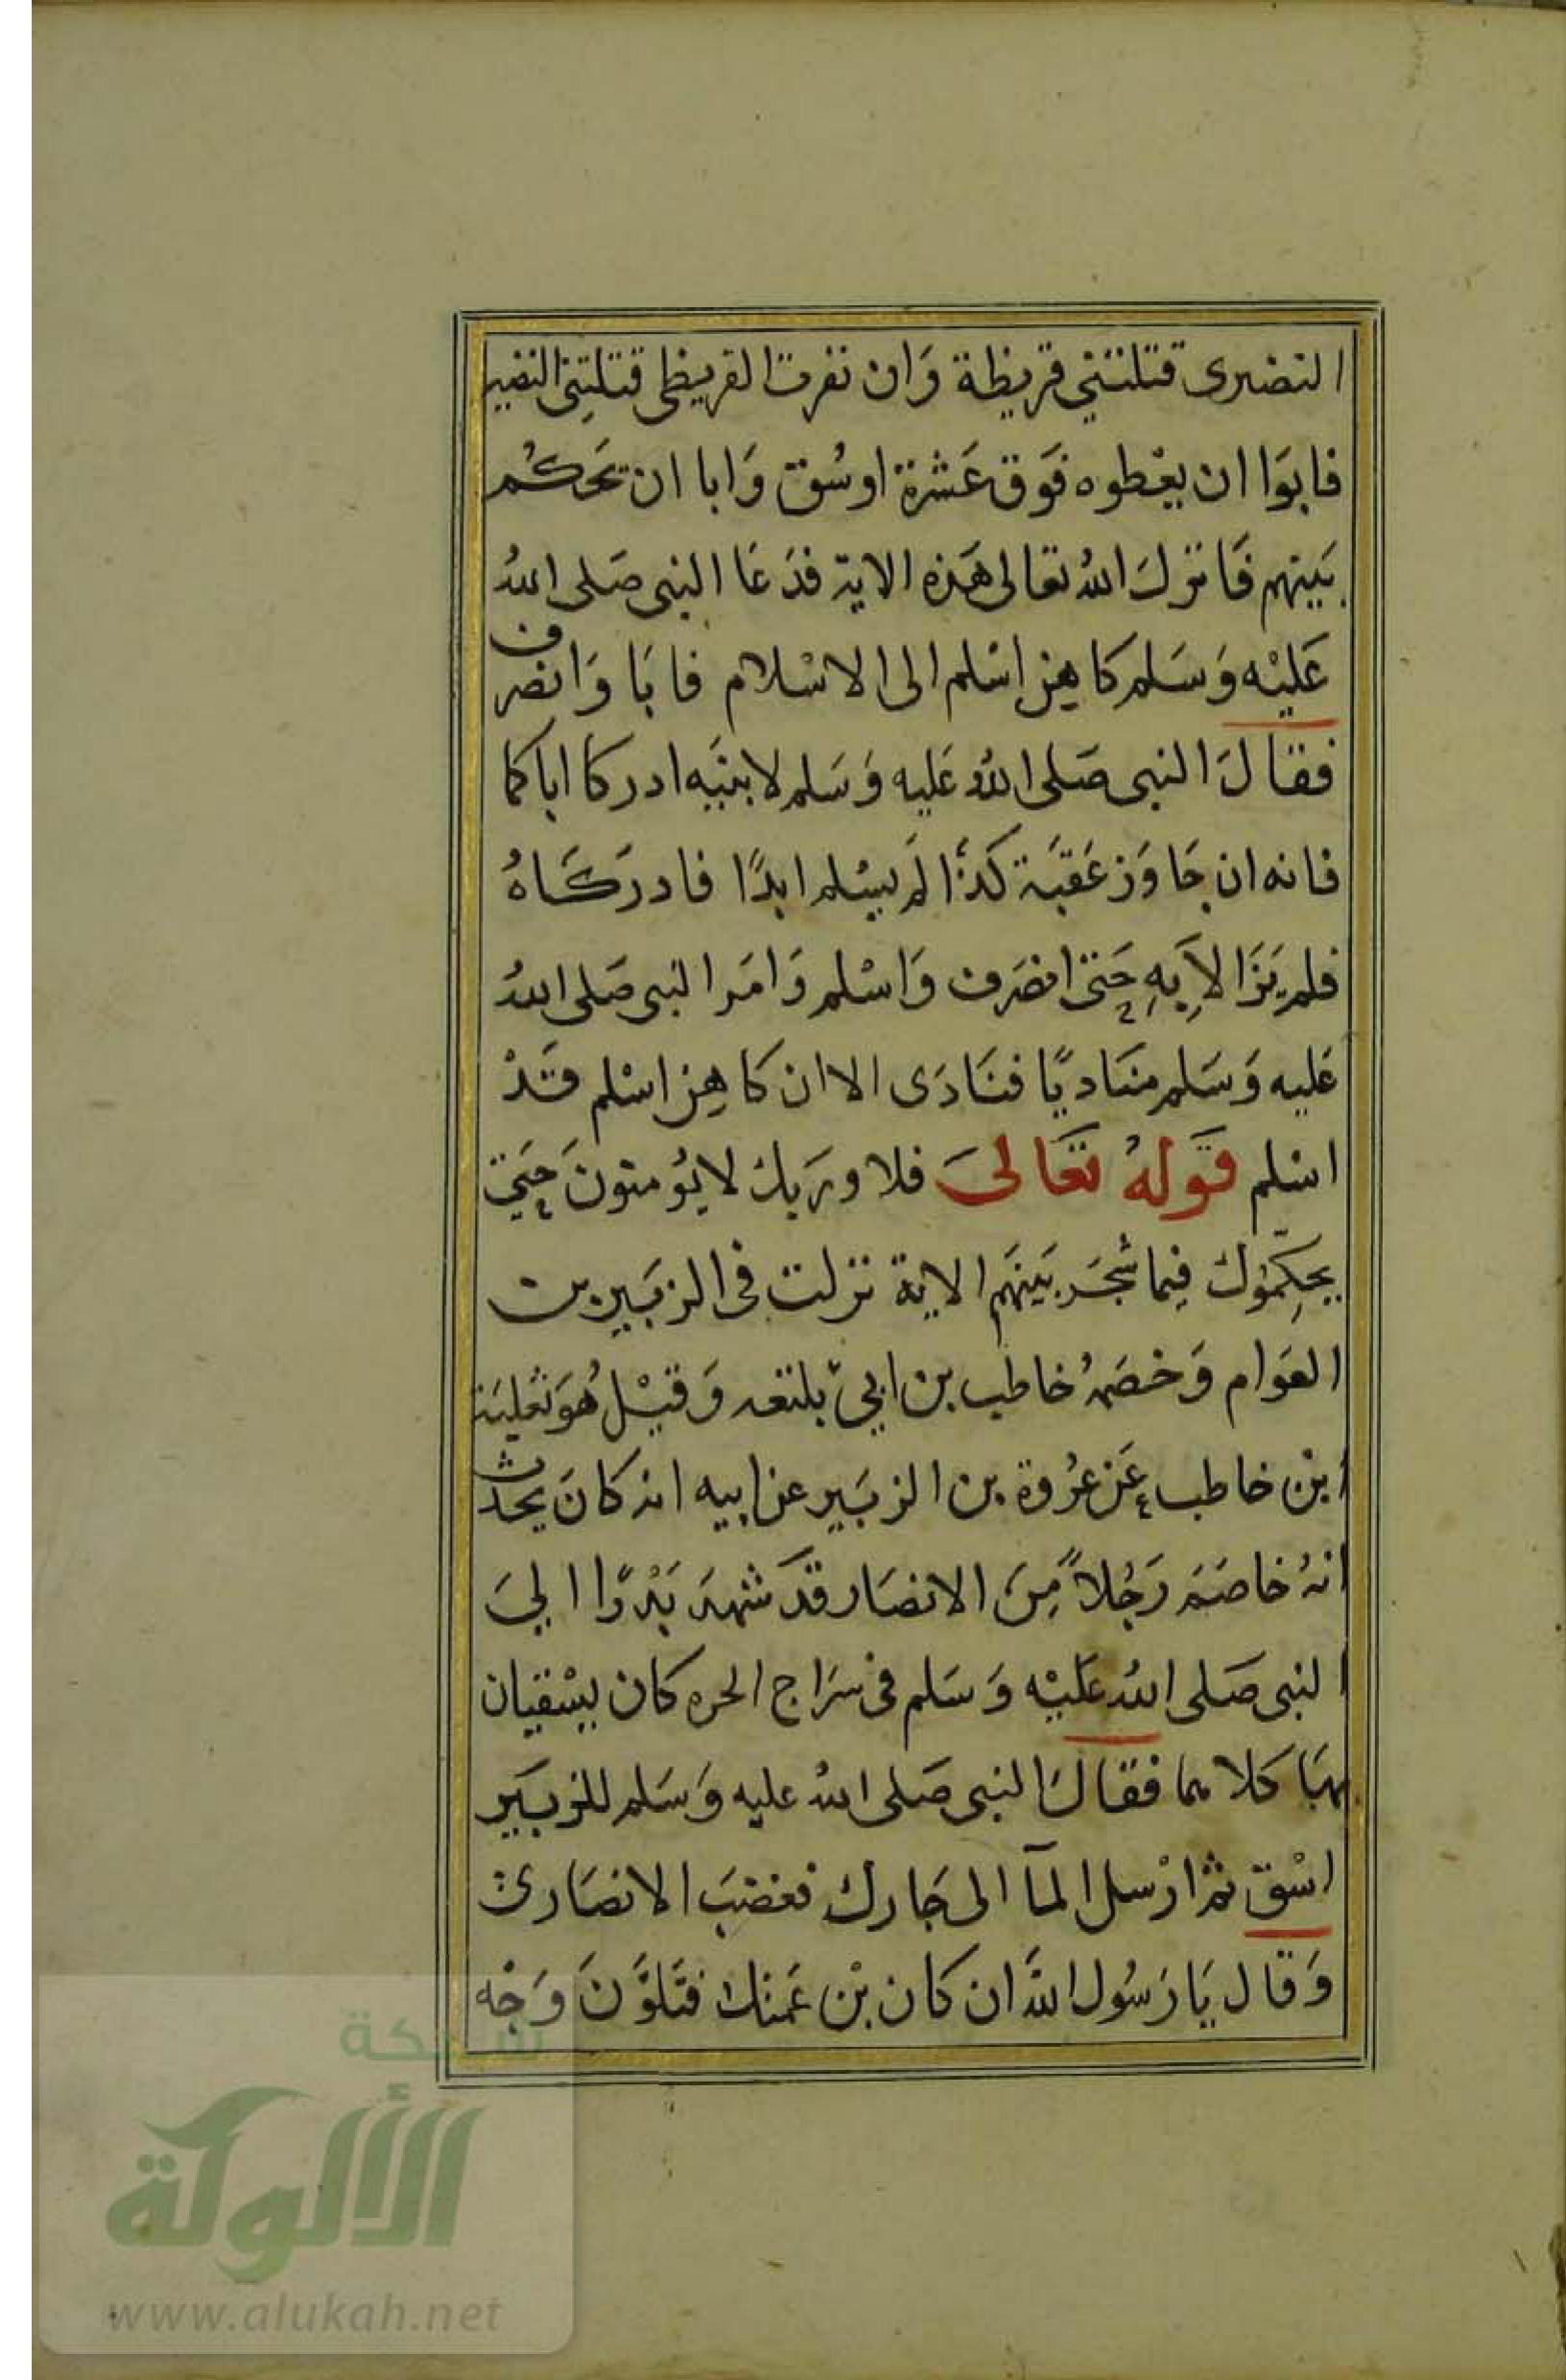 النضيرى قتلتني قريظة وَان نفرت القريظى قتلتِنى النضير
فابوَا ان يعْطوه فوَق عَشرة اوسُق وَابا ان يحَكُم
بَينهم فَانزلَ اللهُ تعالى هَذه الاية فدَعَا النبى صَلى اللهُ
عَليْه وَسَلم كاهِن اسْلم الى الاسْلام فابَا وَانصرف
فقالَ النبى صَلى اللهُ عَليه وَسَلم لابنيَه ادركا اباكما
فانه ان جَاوَز عَقبَة كَذا لَم يسْلم ابدًا فادركَاهُ
فلم يَزَالاَ بِهِ حَتى انصَرف وَاسْلم وَامَر النبى صَلى اللهُ
عَليه وَسَلم منَاديًا فنَادَى الا ان كاهِن اسْلم قَدْ
اسْلم قَولهُ تَعَالىَ فلا وربك لا يُومنونَ حَتي
يحكِّموُك فيما شجَر بَينَهم الاية نزلت فى الزبَير بن
العَوام وَخصَمهُ خاطب بن ابي بلتعه وَقيْل هُوَ ثعلبَة
ابن خاطب عَن عرُوة بن الزبَير عن ابيه انه كانَ يحدث
انهُ خاصَم رَجُلاً مِنَ الانصَار قَد شهدَ بَدْرًا اليَ
النبى صَلى اللهُ عَليْه وَسَلم فى سرَاج الحره كان يسْقيان
بهَا كلاهما فقالَ النبى صَلى اللهُ عليه وَسَلم للزبَير
اسْق ثم ارْسل المآ الى جَارك فغضبَ الانصَارى
وَقال يَا رَسُول اللهَ ان كان بْن عَمتك فتَلوَّنَ وَجْه
شبكة
الألوكة
www.alukah.net